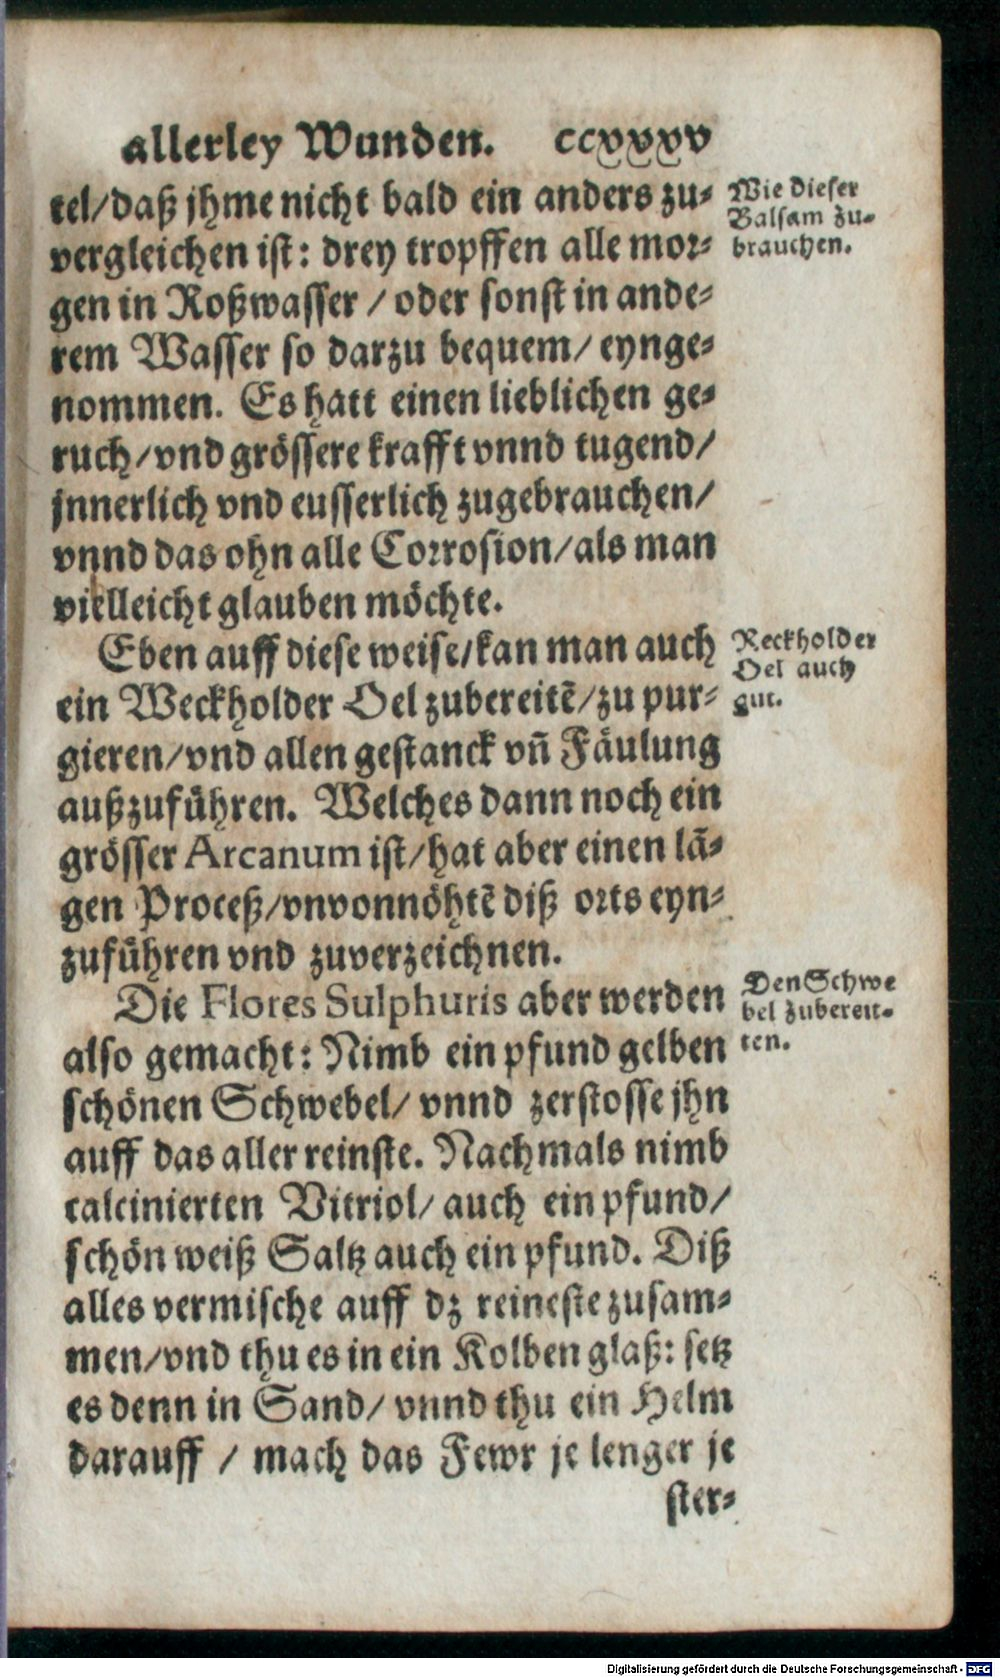 allerley Wunden. ccxxxv
tel/daß jhme nicht bald ein anders zu-
vergleichen ist: drey tropffen alle mor-
gen in Roßwasser / oder sonst in ande-
rem Wasser so darzu bequem/ eynge-
nommen. Es hatt einen lieblichen ge-
ruch/vnd grössere krafft vnnd tugend/
jnnerlich vnd eusserlich zugebrauchen/
vnnd das ohn alle Corrosion/als man
vielleicht glauben möchte.
Wie dieser
Balsam zu-
brauchen.
Eben auff diese weise/kan man auch
ein Weckholder Oel zubereitē/zu pur-
gieren/vnd allen gestanck vn̄ Fäulung
außzuführen. Welches dann noch ein
grösser Arcanum ist/hat aber einen lā-
gen Proceß/vnvonnöhtē diß orts eyn-
zuführen vnd zuverzeichnen.
Reckholder
Oel auch
gut.
Die Flores Sulphuris aber werden
also gemacht: Nimb ein pfund gelben
schönen Schwebel/ vnnd zerstosse jhn
auff das aller reinste. Nachmals nimb
calcinierten Vitriol/ auch ein pfund/
schön weiß Saltz auch ein pfund. Diß
alles vermische auff dz reineste zusam-
men/vnd thu es in ein Kolben glaß: setz
es denn in Sand/ vnnd thu ein Helm
darauff / mach das Fewr je lenger je
ster-
Den Schwe
bel zubereit-
ten.
Digitalisierung gefördert durch die Deutsche Forschungsgemeinschaft - DFG